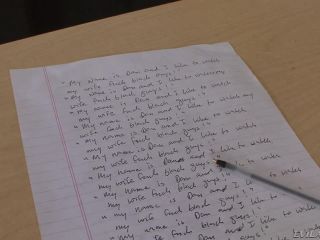 "My name is Dan and I like to watch
my wife fuck black guys!"
"My name is Dan and I like to watch
my wife fuck black guys!"
"My name is Dan and I like to watch
my wife fuck black guys!"
"My name is Dan and I like to watch my
wife fuck black guys!"
"My name is Dan and I like to watch
my wife fuck black guys!"
"My name is Dan and I like to watch
my wife fuck black guys!"
"My name is Dan and I like to watch
my wife fuck black guys!"
"My name is Dan and I like to watch
my wife fuck black guys!"
"My name is Dan and I like to watch
my wife fuck black guys!"
my name is Dan and I like to
wife fuck black guys!"